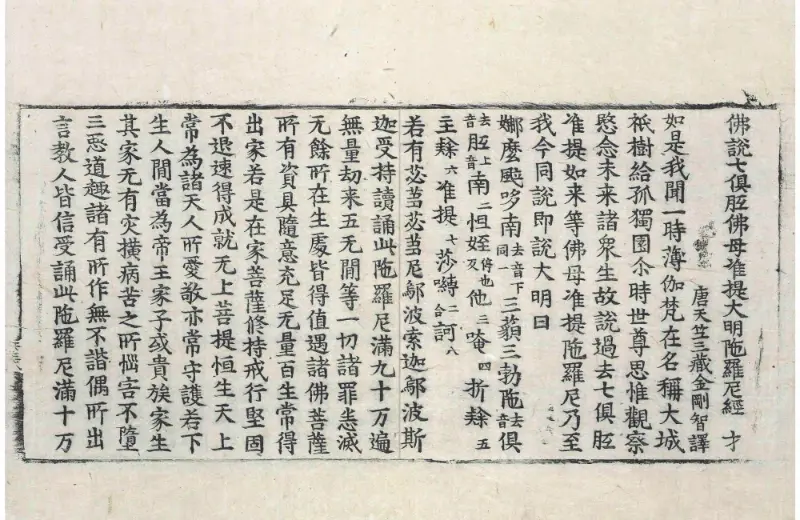 佛說七俱胝佛母准提大明陁羅尼經 才
唐天竺三藏金剛智譯
如是我聞一時薄伽梵在名稱大城
祇樹給孤獨園尒時世尊思惟觀察
愍念未来諸衆生故說過去七俱胝
准提如来等佛母准提陁羅尼乃至
我今同說即說大明曰
娜麽颯哆南去音下同一三藐三勃陁去音俱
去音胝上音南二怛姪停也反他三唵四折𨽻五
主𨽻六准提七莎嚩二合訶八
若有苾蒭苾蒭尼鄔波索迦鄔波斯
迦受持讀誦此陁羅尼滿九十万遍
無量劫来五无間等一切諸罪悉滅
无餘所在生處皆得值遇諸佛菩薩
所有資具隨意充足无量百生常得
出家若是在家菩薩修持戒行堅固
不退速得成就无上菩提恒生天上
常為諸天人所愛敬亦常守護若下
生人間當為帝王家子或貴族家生
其家无有灾橫病苦之所惱害不墮
三惡道趣諸有所作無不諧偶所出
言教人皆信受誦此陁羅尼滿十万